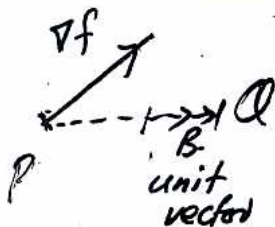 ∇f
Q
P
B
unit
vector